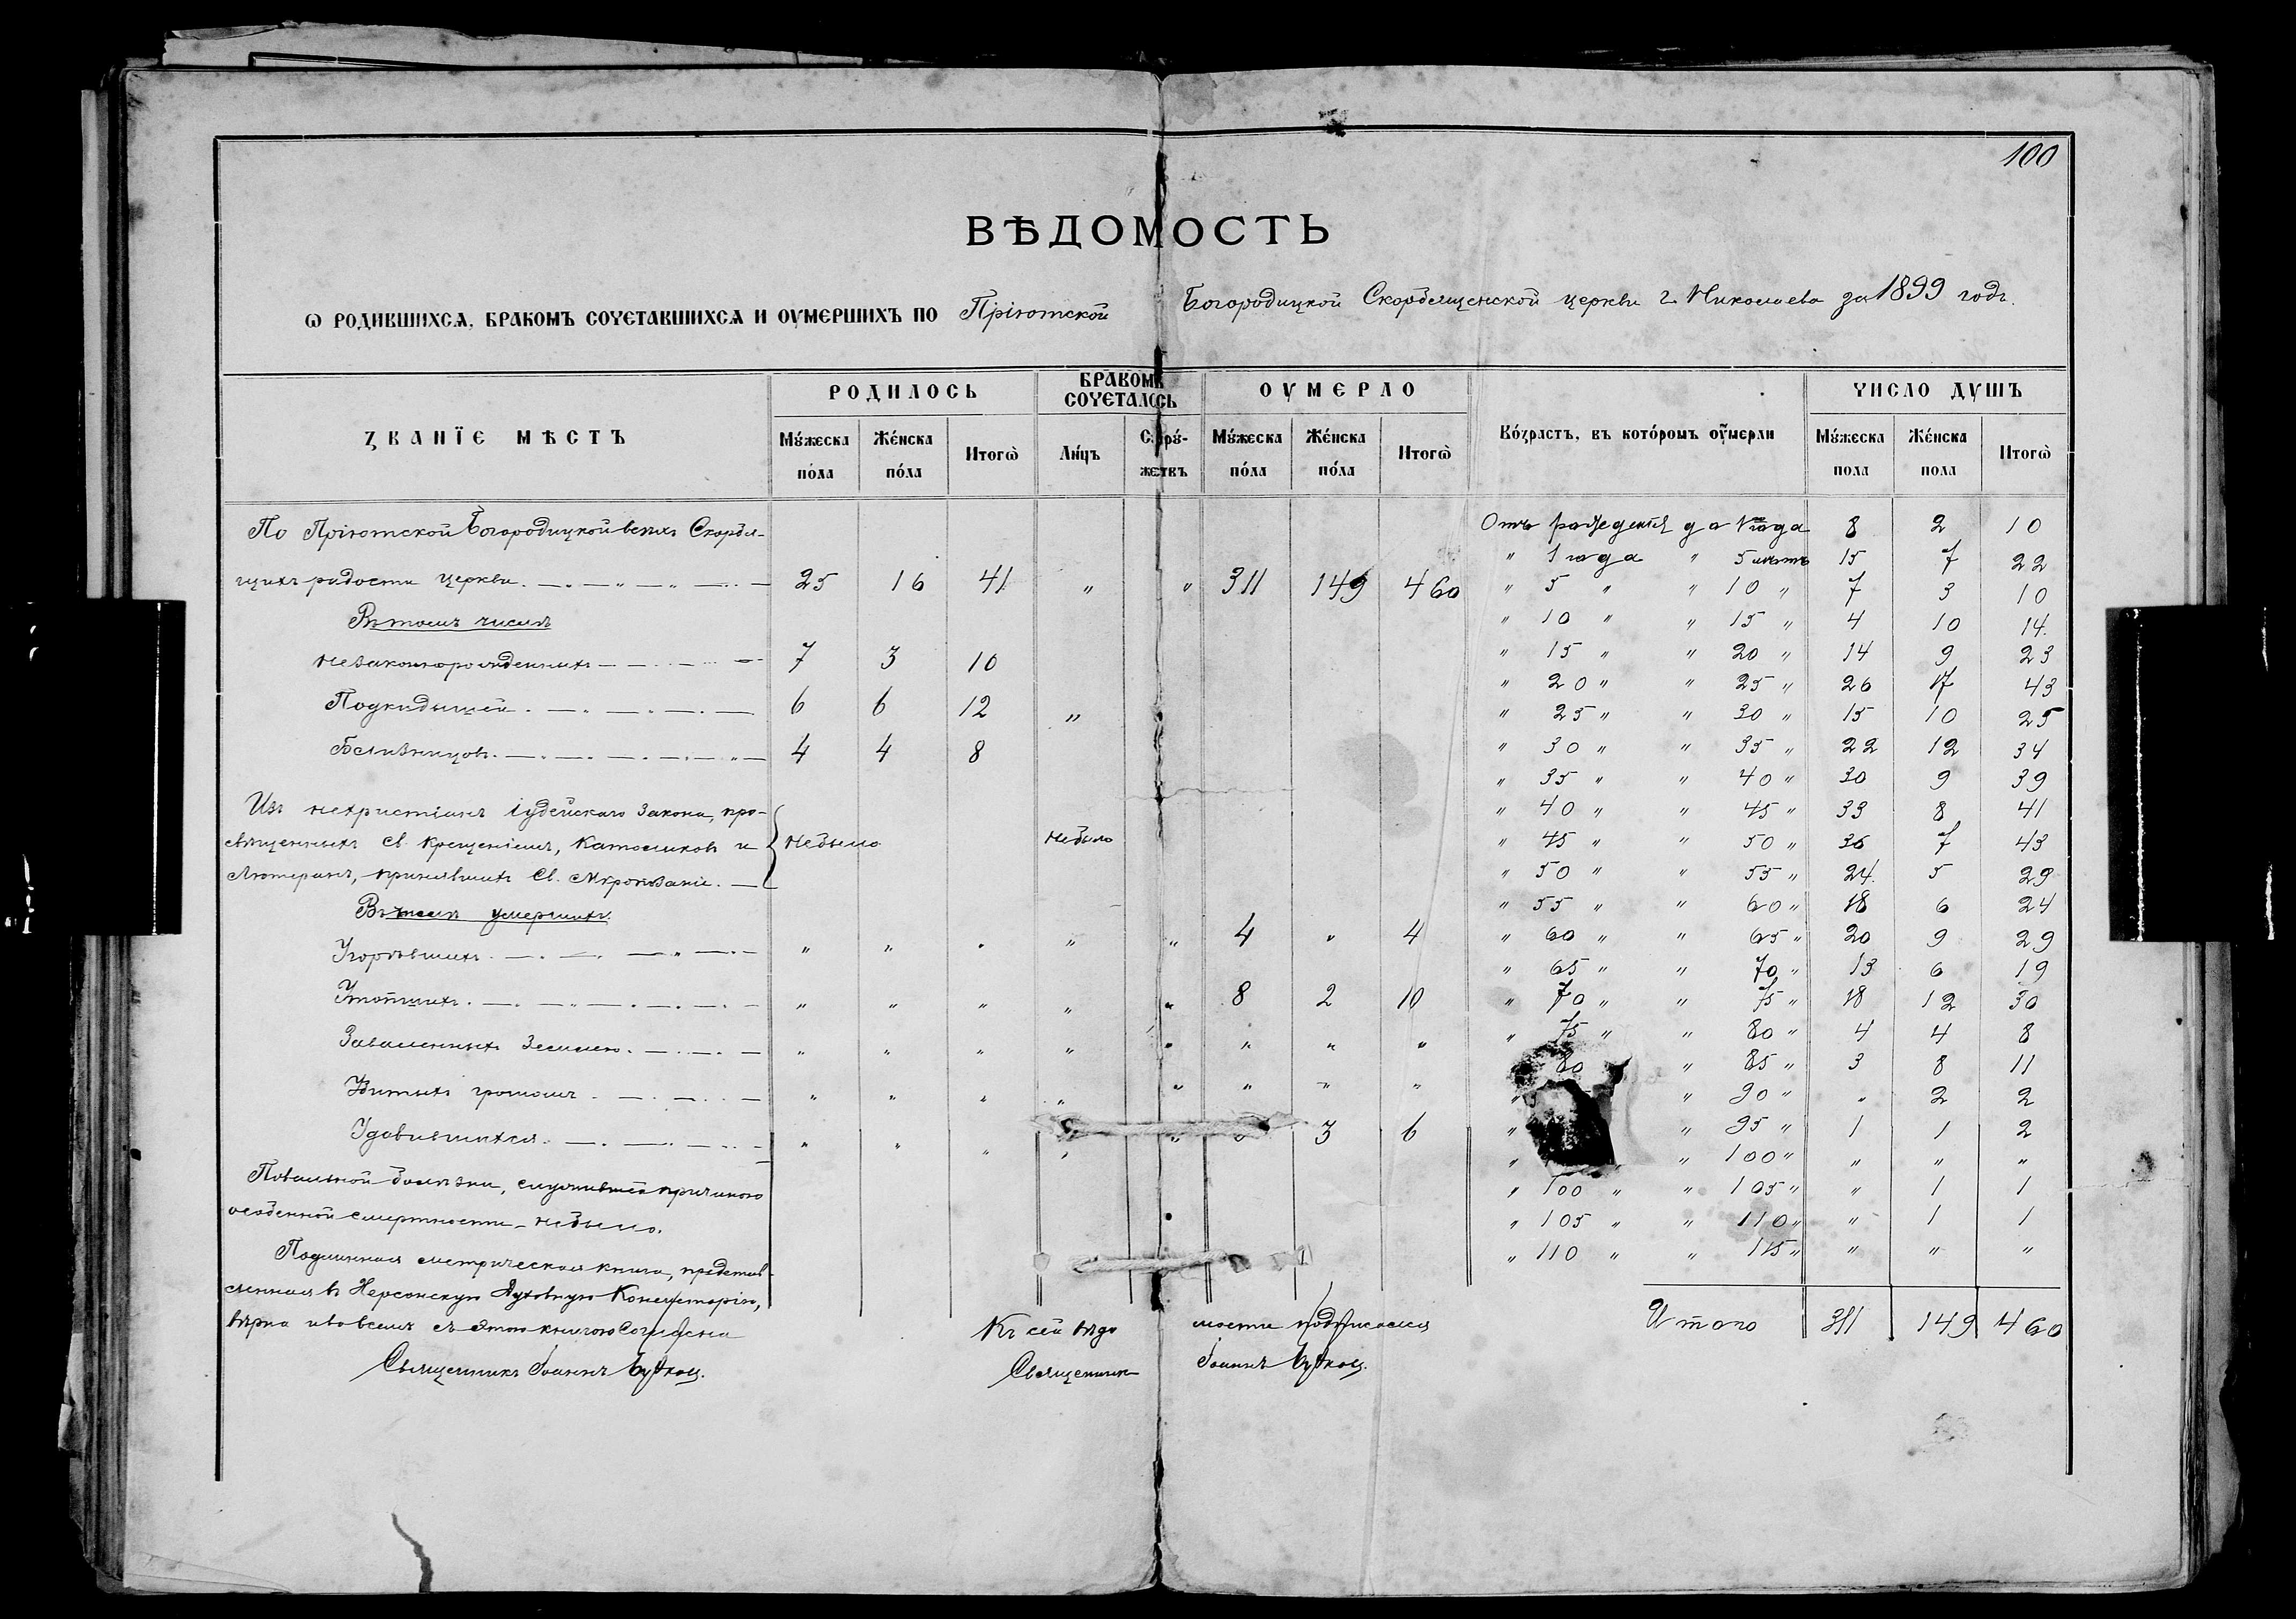 100
ВѢДОМОСТЬ
Ѡ РОДИВШИХСѦ, БРАКОМЪ СОЧЕТАВШИХСѦ И ОУМЕРШИХЪ ПО Пріютской Богородицкой Скорбященской церкви г. Николаева за 1899 годъ.
ЗВАНЇЕ МѢСТЪ
РОДИЛОСЬ
БРАКОМЪ СОЧЕТАЛОСЬ
ОУМЕРЛО
Во́зрастъ, въ кото́ромъ оу҆́мерли
ЧИСЛО ДУШЪ
Му́жеска по́ла Же́нска по́ла Итогѡ̀ Ли́цъ Супру́-жествъ Му́жеска по́ла Же́нска по́ла Итогѡ̀ Му́жеска пола Же́нска пола Итогѡ̀
По Пріютской Богородицкой всѣхъ Скорбя-
щихъ радости церкви. 25 16 41 " " 311 149 460
Въ томъ числѣ
незаконнорожденныхъ 7 3 10
Подкидышей 6 6 12 "
Близнецовъ 4 4 8
Изъ нехристіанъ іудейскаго закона, про-
свѣщенныхъ св. крещеніемъ, католиковъ и небыло небыло
Лютеранъ, принявшихъ Св. Мѵропомазаніе.
Въ числѣ умершихъ:
Угорѣвшихъ. " " " " " 4 " 4
Утопшихъ. " " " " " 8 2 10
Заваленныхъ землею. " " " " " " " "
Убитыхъ громомъ " " " " " " " "
Удавившихся. " " " " " 3 6
Повальной болѣзни, служившей причиною
особенной смертности – небыло.
Подлинная метрическая книга, представ-
ленная въ Херсонскую Духовную Консисторію,
вѣрна и во всемъ съ этою книгою согласна
Священникъ Іоаннъ
Къ сей вѣдомости подписался
Священникъ Іоаннъ
Отъ рожденія до 1 года 8 2 10
" 1 года " 5 лѣтъ 15 7 22
" 5 " " 10 " 7 3 10
" 10 " " 15 " 4 10 14.
" 15 " " 20 " 14 9 23
" 20 " " 25 " 26 17 43
" 25 " " 30 " 15 10 25
" 30 " " 35 " 22 12 34
" 35 " " 40 " 30 9 39
" 40 " " 45 " 33 8 41
" 45 " " 50 " 36 7 43
" 50 " " 55 " 24. 5 29
" 55 " " 60 " 18 6 24
" 60 " " 65 " 20 9 29
" 65 " " 70 " 13 6 19
" 70 " " 75 " 18 12 30
" 75 " " 80 " 4 4 8
80 " 85 " 3 8 11
" " 90 " " 2 2
" " 95 " 1 1 2
" " 100 " " " "
" 100 " " 105 " " 1 1
" 105 " " 110 " " 1 1
" 110 " " 115 " " " "
Итого 311 149 460